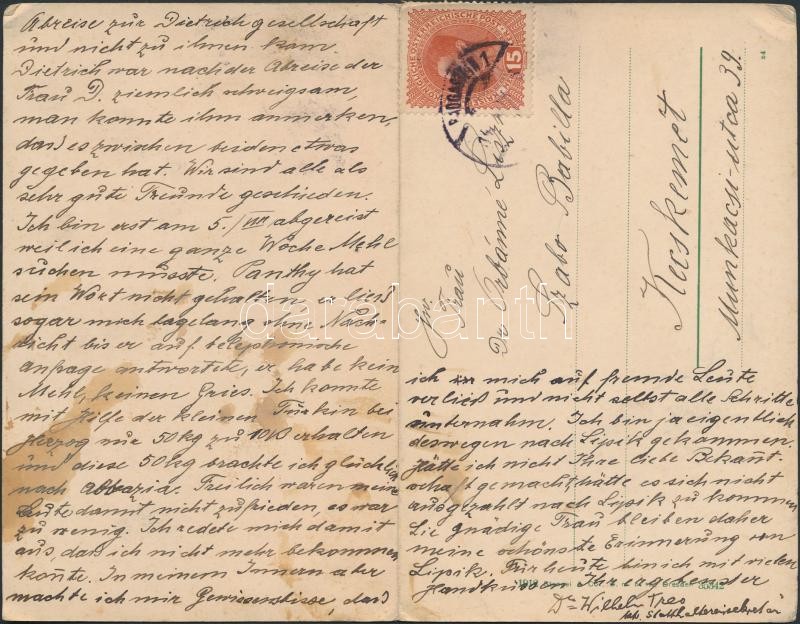 Abreise zur Dietrich gesellschaft
und nicht zu ihnen kam.
Dietrich war nach der Abreise der
Frau D. ziemlich schweigsam,
man konnte ihm anmerken,
dass es zwischen beiden etwas
gegeben hat. Wir sind alle als
sehr gute Freunde geschieden.
Ich bin erst am 5./VIII abgereist
weil ich eine ganze Woche Mehl
suchen musste. Panthy hat
sein Wort nicht gehalten er liess
sogar mich tagelang ohne Nach-
richt bis er auf telephonische
Anfrage antwortete, er habe kein
Mehl, keinen Gries. Ich konnte
mit Hilfe der kleinen Türkin bei
Herzog nur 50 kg zu 10 erhalten
und diese 50 kg brachte ich glücklich
nach Abbazia. Freilich waren meine
Leute damit nicht zufrieden, es war
zu wenig. Ich redete mich damit
aus, dass ich nicht mehr bekommen
konnte. In meinem Innern aber
machte ich mir Gewissensbisse, dass
15
Frau
Dr Orbánné
Szabo Babilla
Kecskemét
Munkácsi-utca 39.
ich mich auf fremde Leute
verliess und nicht selbst alle Schritte
unternahm. Ich bin ja eigentlich
deswegen nach Lipik gekommen.
Hätte ich nicht Ihre liebe Bekannt-
schaft gemacht, hätte es sich nicht
ausgezahlt nach Lipik zu kommen
Sie gnädige Frau bleiben daher
meine schönste Erinnerung von
Lipik. Für heute bin ich mit vielen
Handküssen Ihr ergebender
Dr Wilhelm Tres
35342
darabanth